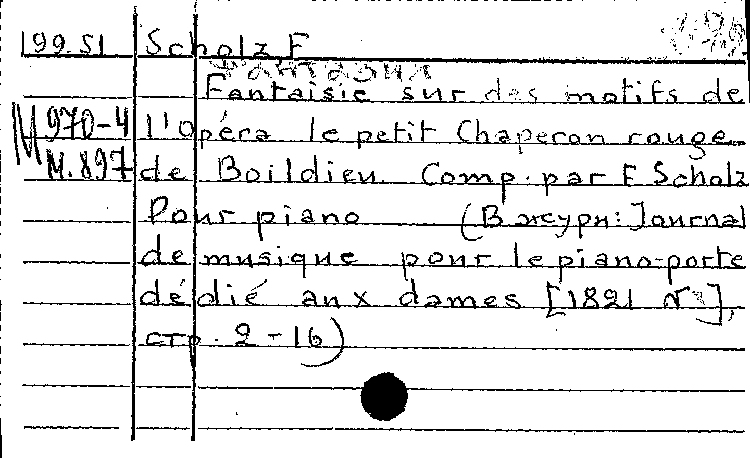 199.51 Scholz F
Фантазия
Fantaisie sur des motifs de
M 970-4 l'opéra le petit Chaperon rouge
M.897 de Boildieu. Comp. par F Scholz
Pour piano (В журн: Journal
de musique pour le piano-porte
dédié aux dames [1821
стр. 2-16)